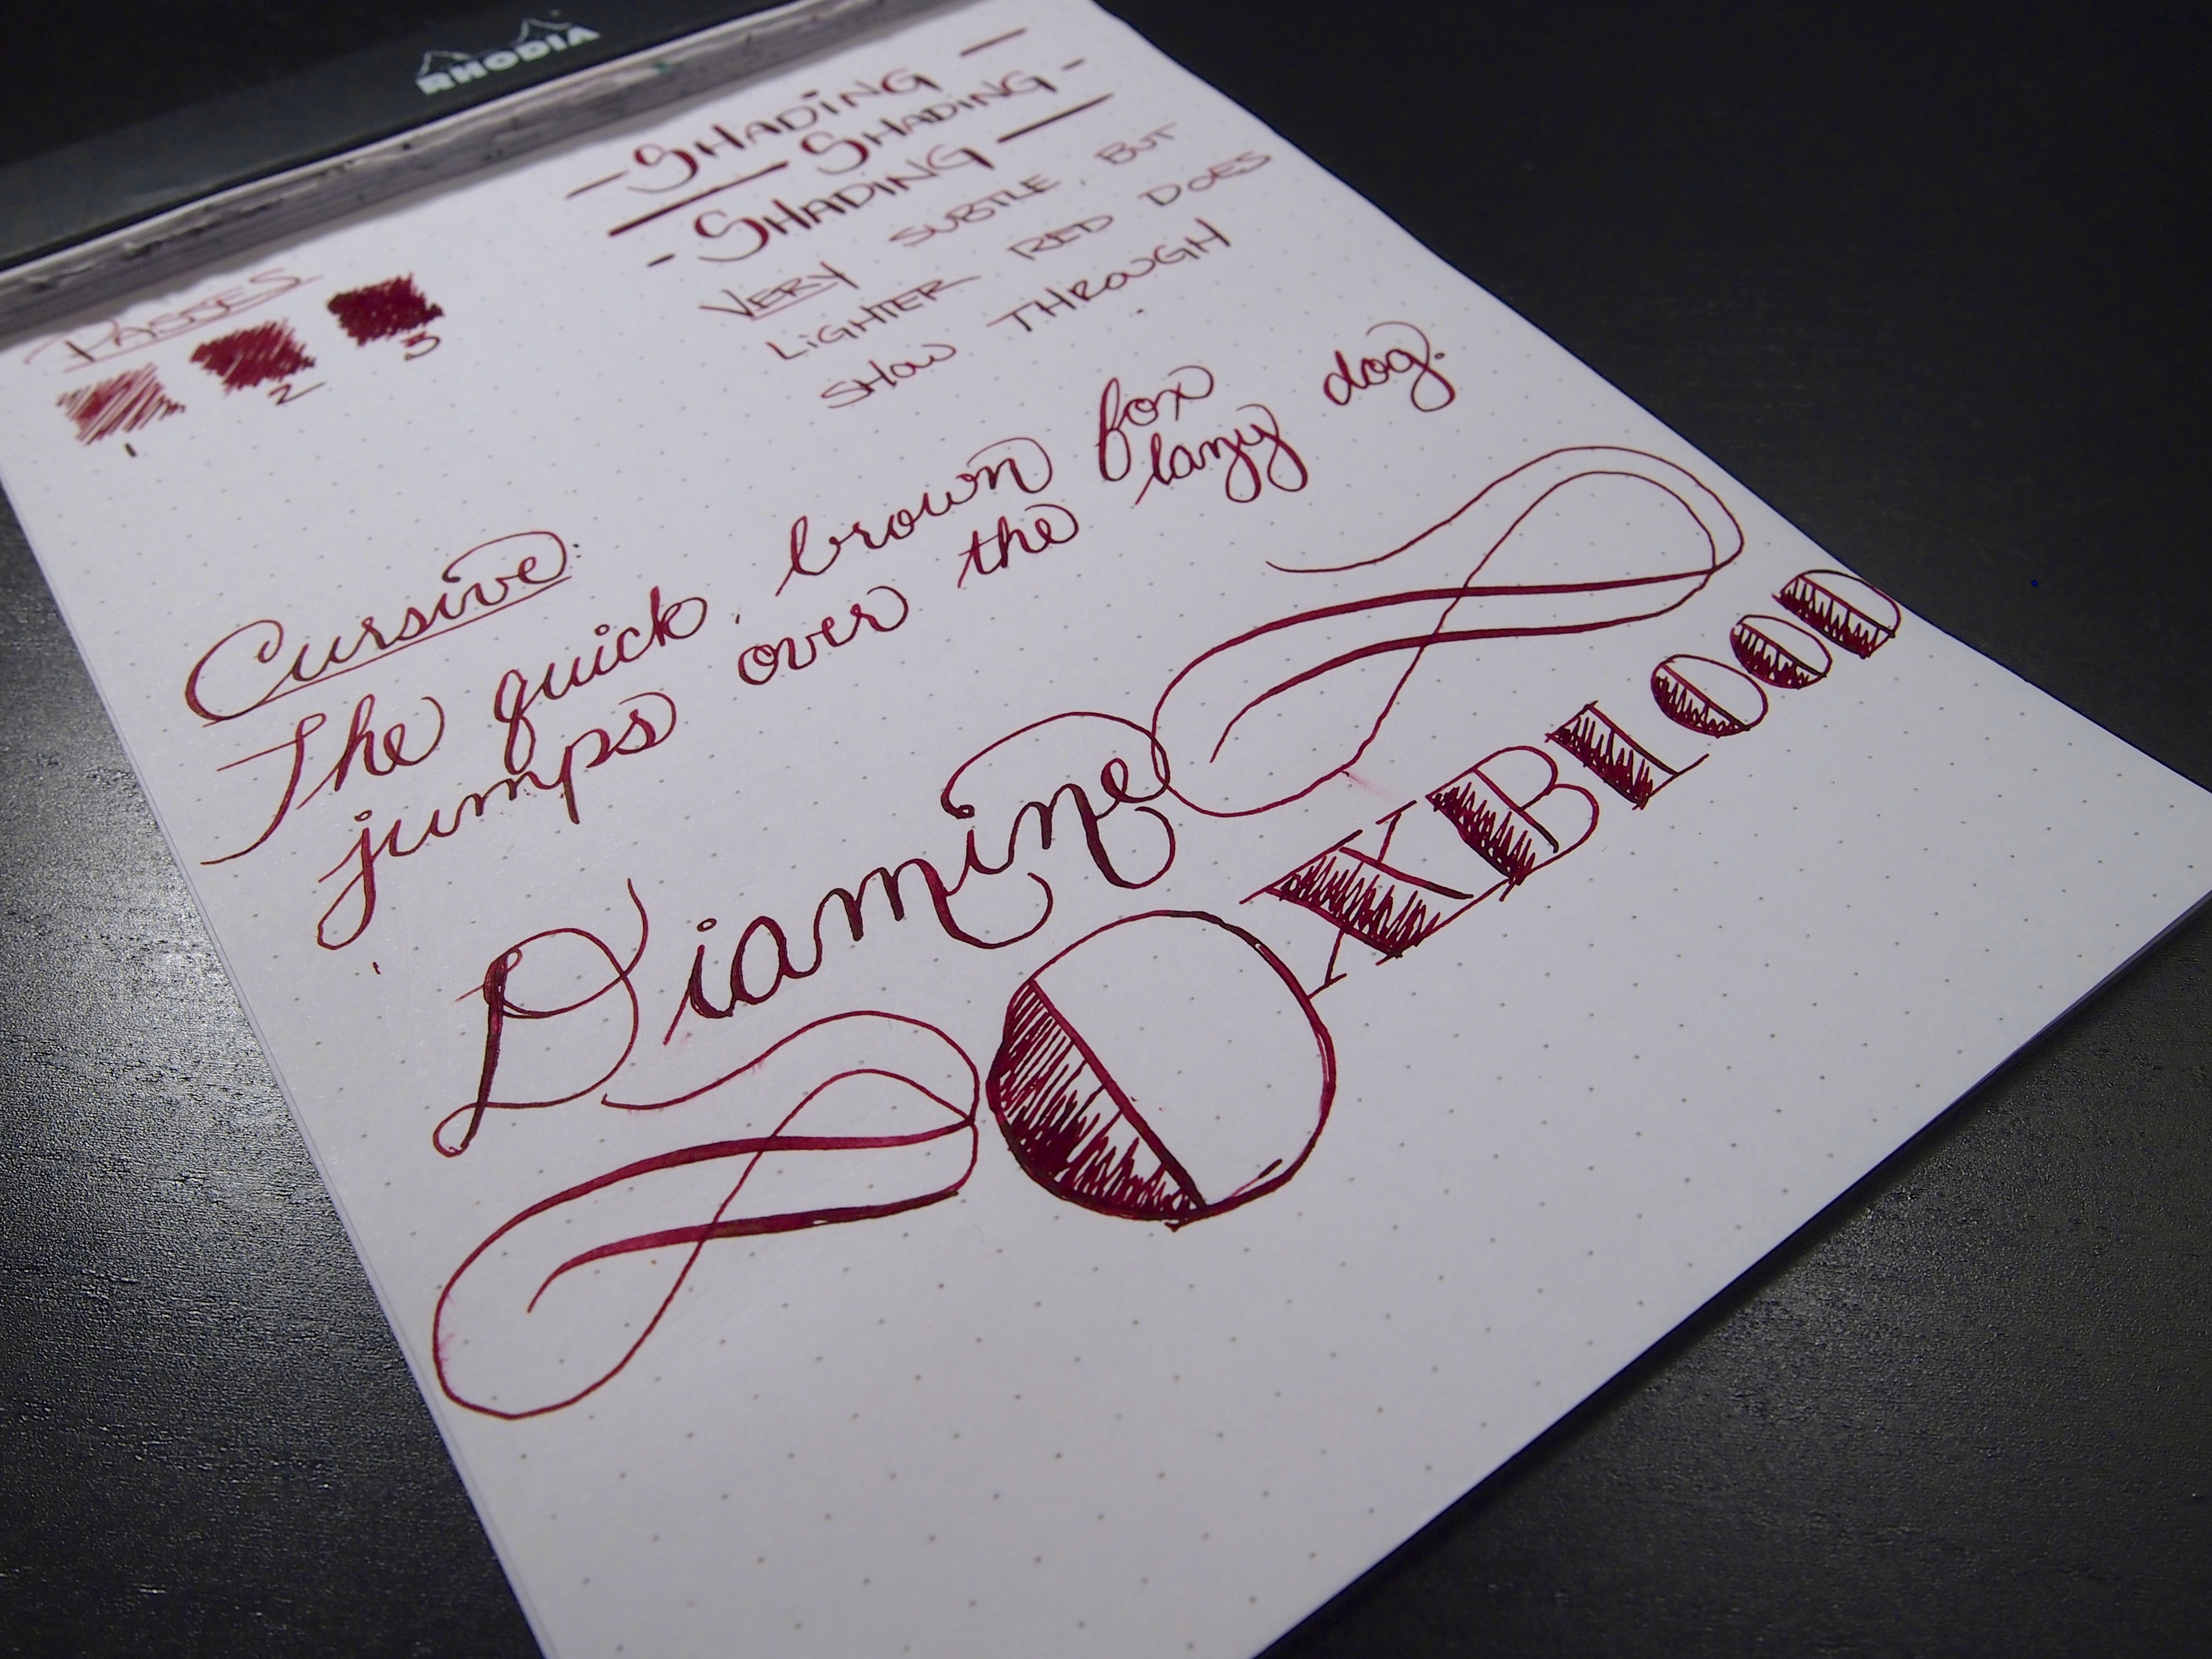 RHODIA
SHADING
SHADING
SHADING
VERY SUBTLE, BUT
LIGHTER RED DOES
SHOW THROUGH
PASSES
1 2 3
Cursive:
The quick brown fox
jumps over the lazy dog.
Diamine
OXBLOOD